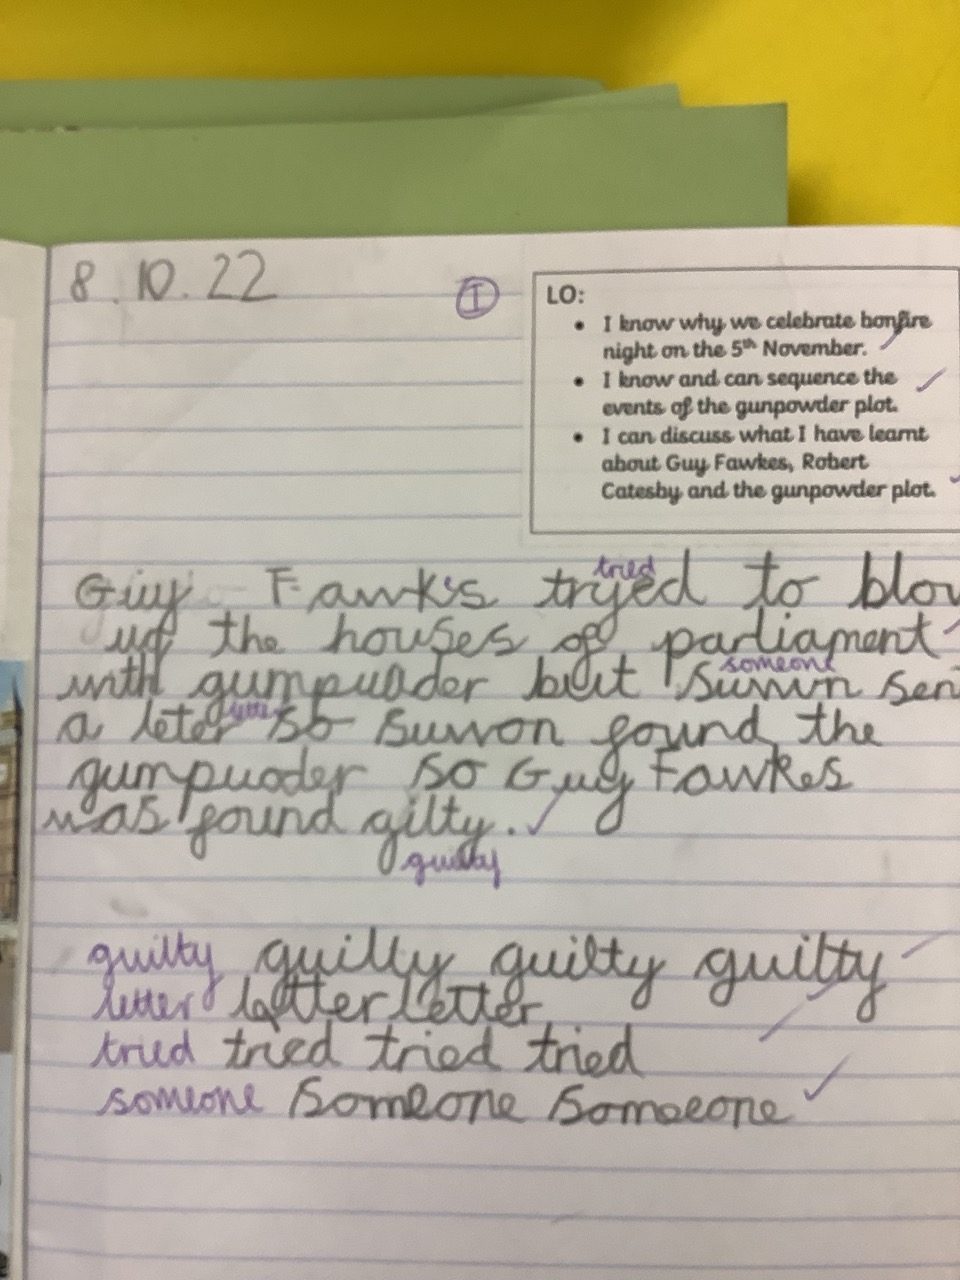 8.10.22
I
LO:
• I know why we celebrate bonfire
night on the 5th November.
• I know and can sequence the
events of the gunpowder plot.
• I can discuss what I have learnt
about Guy Fawkes, Robert
Catesby and the gunpowder plot.
tried
Guy Fawkes tryed to blow
up the houses of parliament
someone
with gumpuoder but suwun sen
a leter so suwon found the
gumpuoder so Guy Fawkes
was found gilty.
guilty
guilty guilty guilty guilty
letter letter letter
tried tried tried tried
someone someone someone